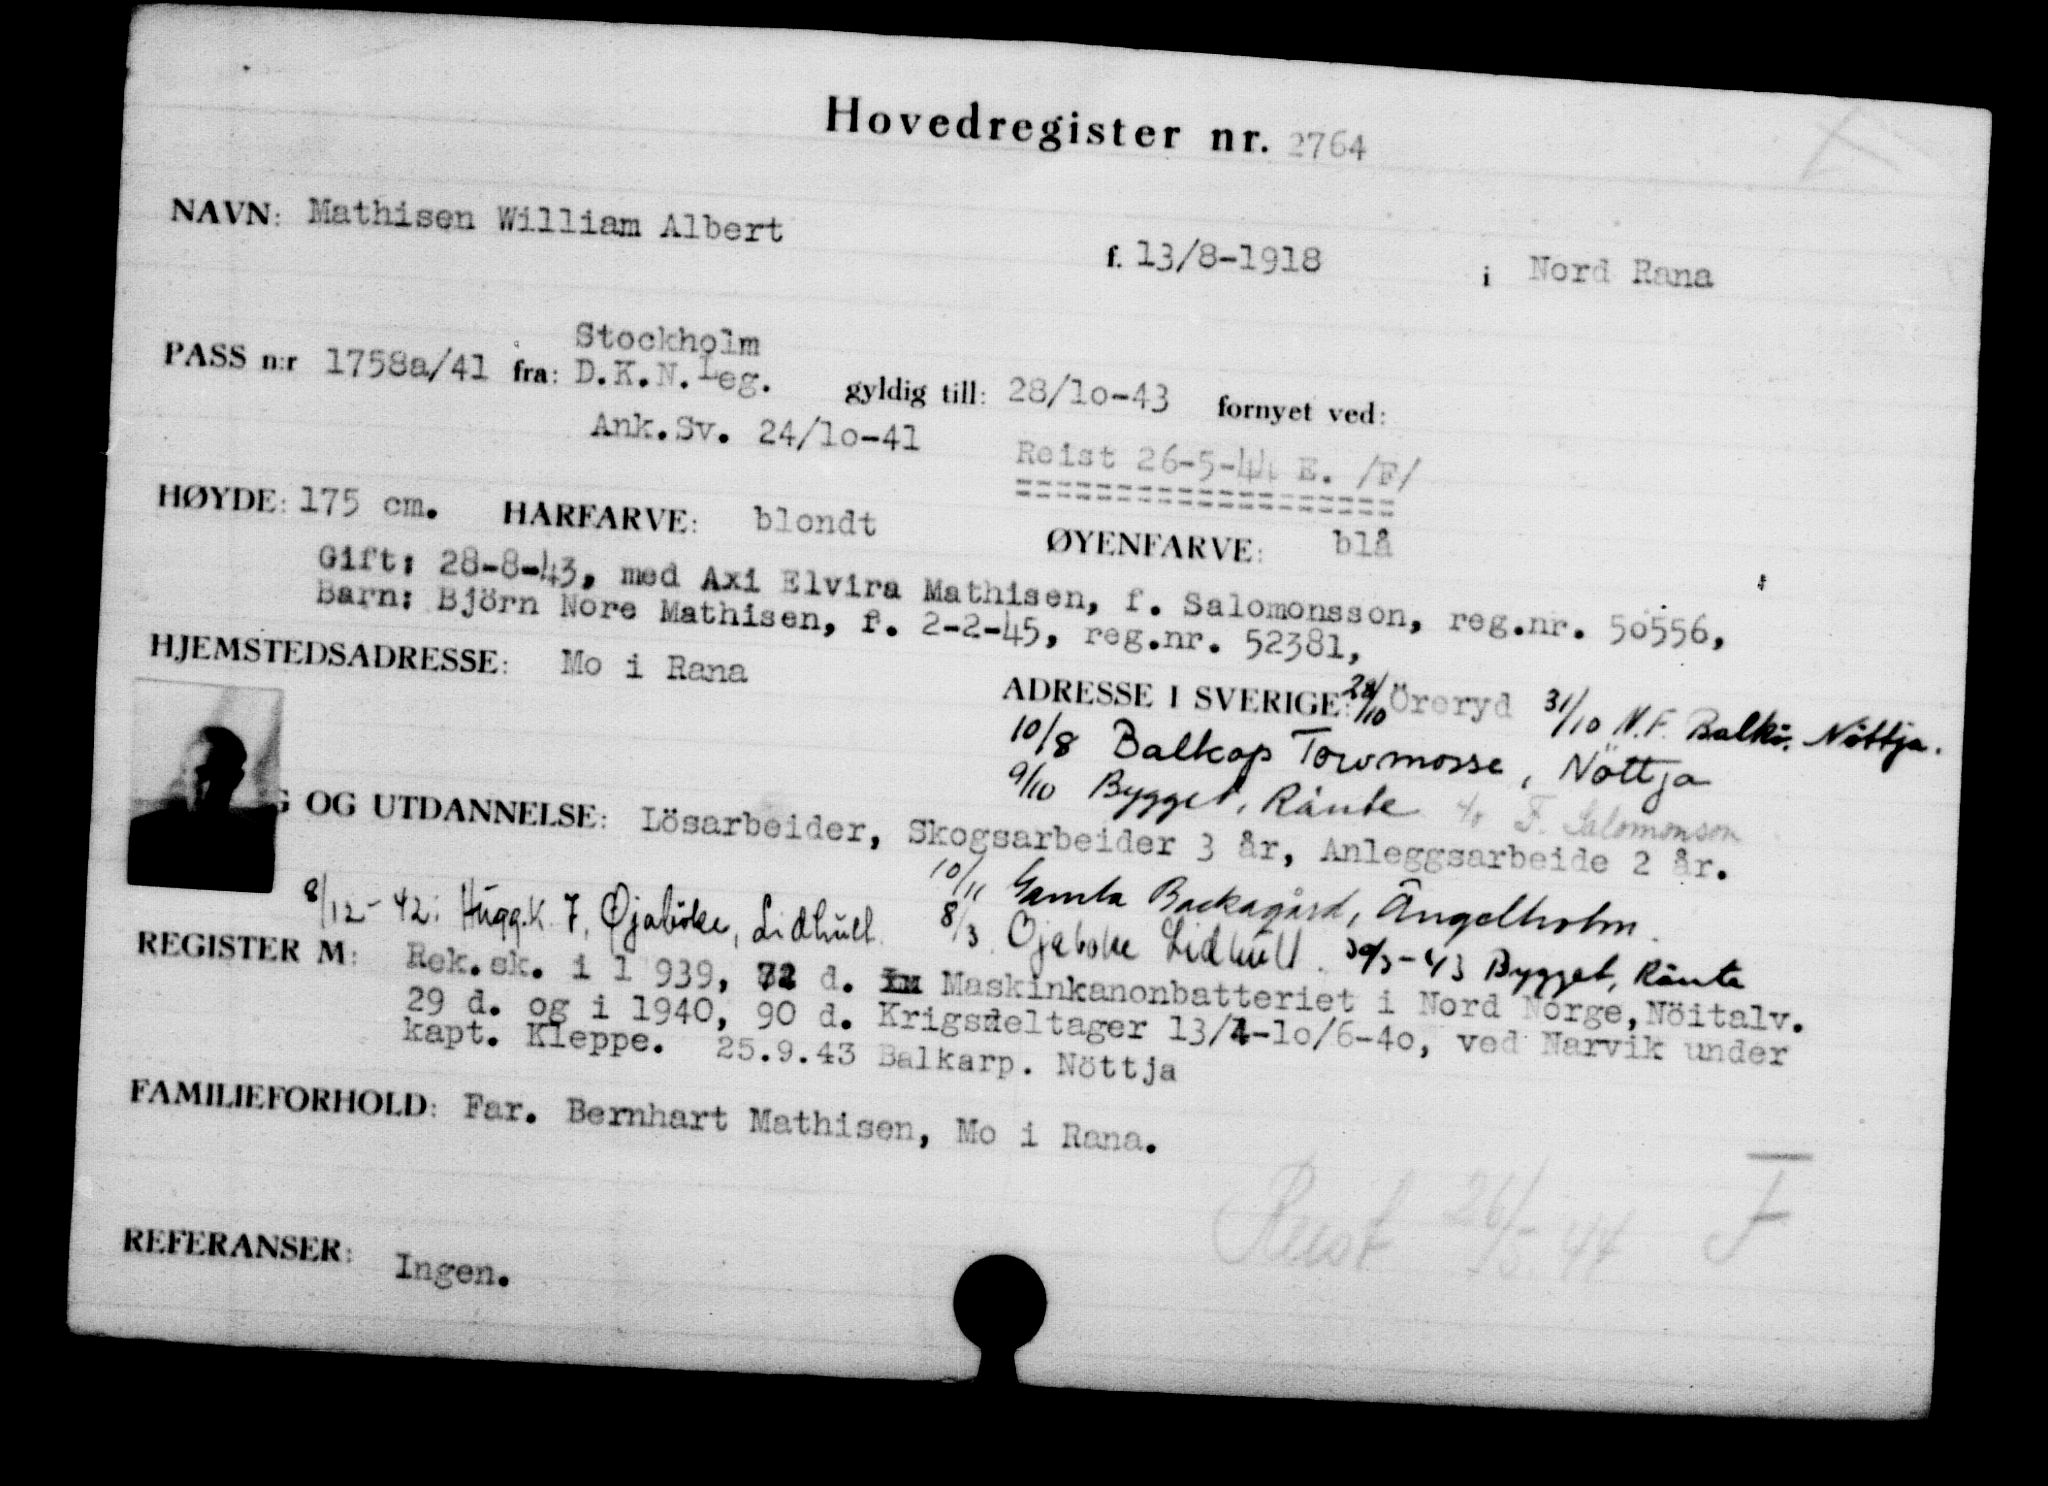 Hovedregister nr. 2764
NAVN: Mathisen William Albert f. 13/8-1918 i Nord Rana
Stockholm
PASS n:r 1758a/41 fra: D.K.N.Leg. gyldig till: 28/1o-43 fornyet ved:
Ank.Sv. 24/1o-41 Reist 26-5-44 E. /F/
HØYDE: 175 cm. HARFARVE: blondt ØYENFARVE: blå
Gift: 28-8-43, med Axi Elvira Mathisen, f. Salomonsson, reg.nr. 50556,
Barn: Björn Nore Mathisen, f. 2-2-45, reg.nr. 52381,
HJEMSTEDSADRESSE: Mo i Rana ADRESSE I SVERIGE: 28/10 Öreryd 31/10 N.F. Balkö. Nöttja.
10/8 Balkop Torvmosse, Nöttja
9/10 Bygget, Rånte F. Salomonson
G OG UTDANNELSE: Lösarbeider, Skogsarbeider 3 år, Anleggsarbeide 2 år.
10/11 Gamla Backagård, Ängelholm.
8/12-42: Hugg.K. 7, Öjaböke, Lidhult. 8/3 Öjaboke Lidhult. 30/3-43 Bygget, Rånte
REGISTER M: Rek.sk. i 1 939, 72 d. Maskinkanonbatteriet i Nord Norge, Nöitalv.
29 d. og i 1940, 90 d. Krigsdeltager 13/4-1o/6-4o, ved Narvik under
kapt. Kleppe. 25.9.43 Balkarp. Nöttja
FAMILIEFORHOLD: Far. Bernhart Mathisen, Mo i Rana.
Reist 26/5.44 F
REFERANSER: Ingen.